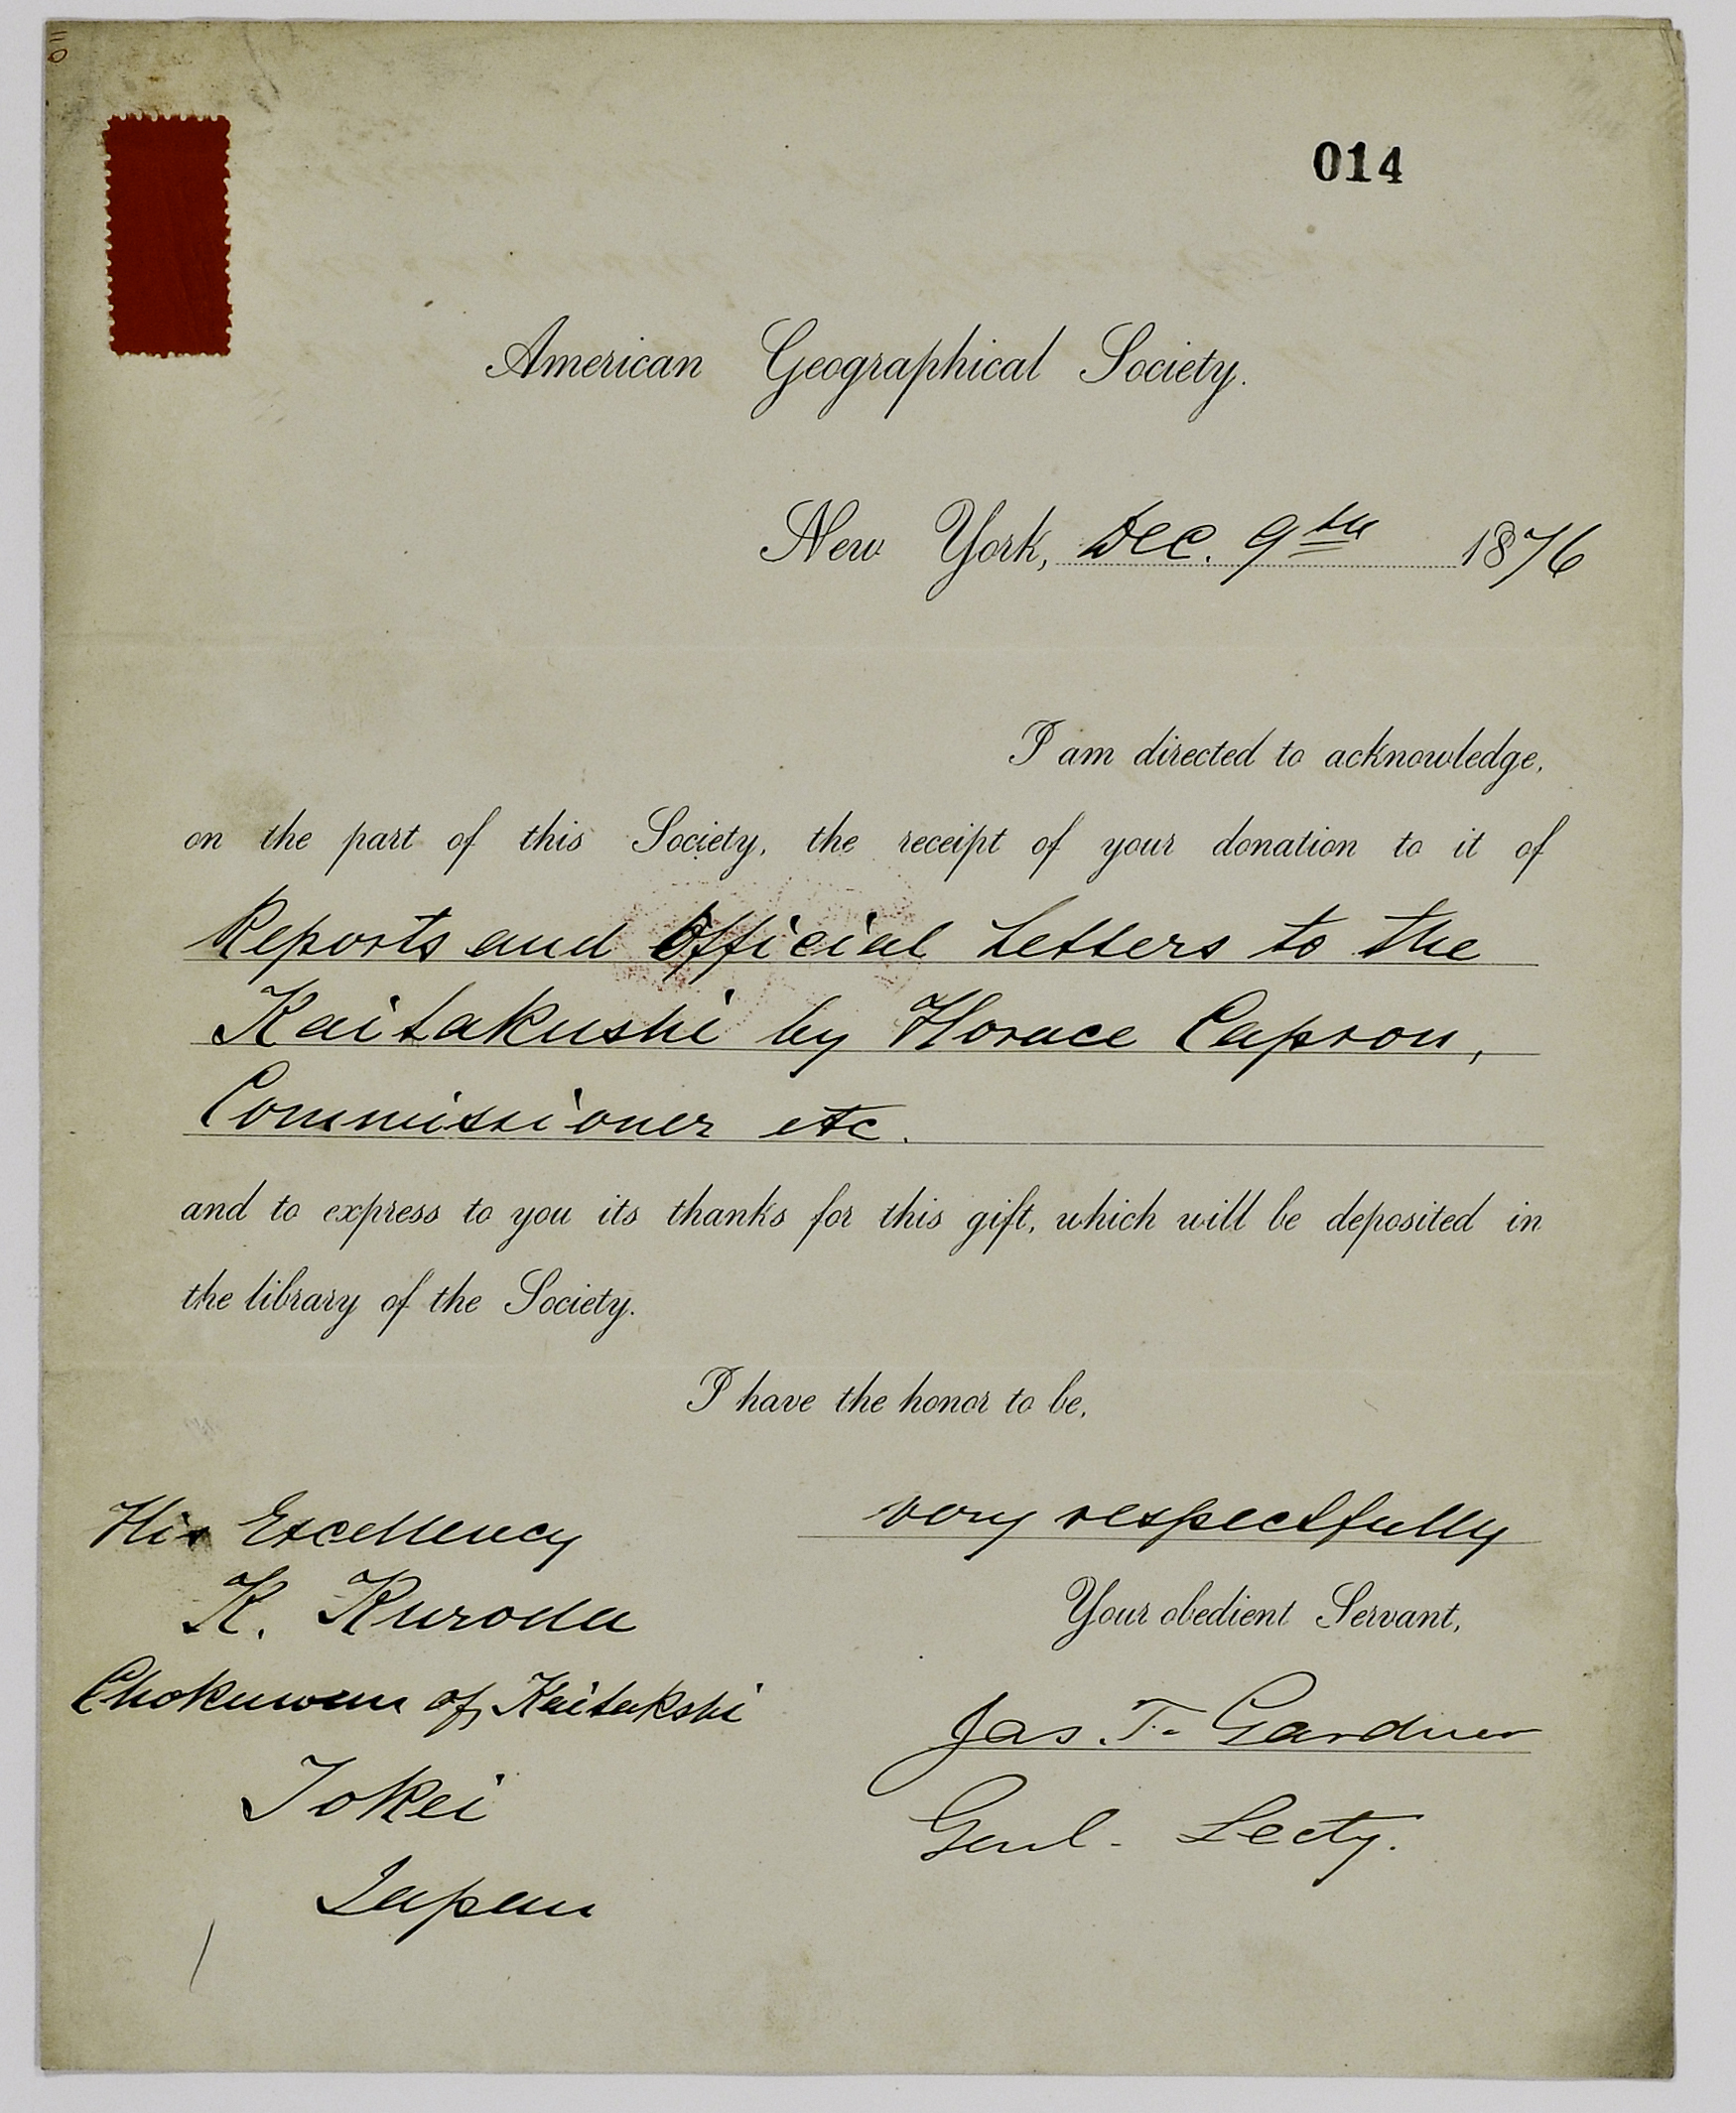 014
American Geographical Society.
New York, Dec. 9th 1876
I am directed to acknowledge,
on the part of this Society, the receipt of your donation to it of
Reports and Official Letters to the
Kaitakushi by Horace Capron,
Commissioner etc.
and to express to you its thanks for this gift, which will be deposited in
the library of the Society.
I have the honor to be,
very respectfully
His Excellency
K. Kuroda
Your obedient Servant,
Chokuwan of Kaitakshi
Jas. T. Gardner
Tokei
Genl. Secty.
Japan